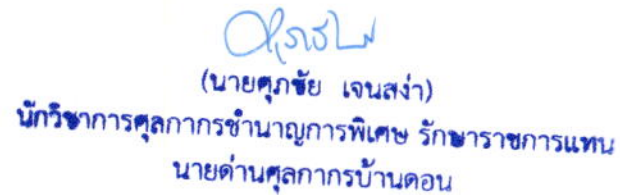 (นายศุภชัย เจนสง่า)
นักวิชาการศุลกากรชำนาญการพิเศษ รักษาราชการแทน
นายด่านศุลกากรบ้านดอน